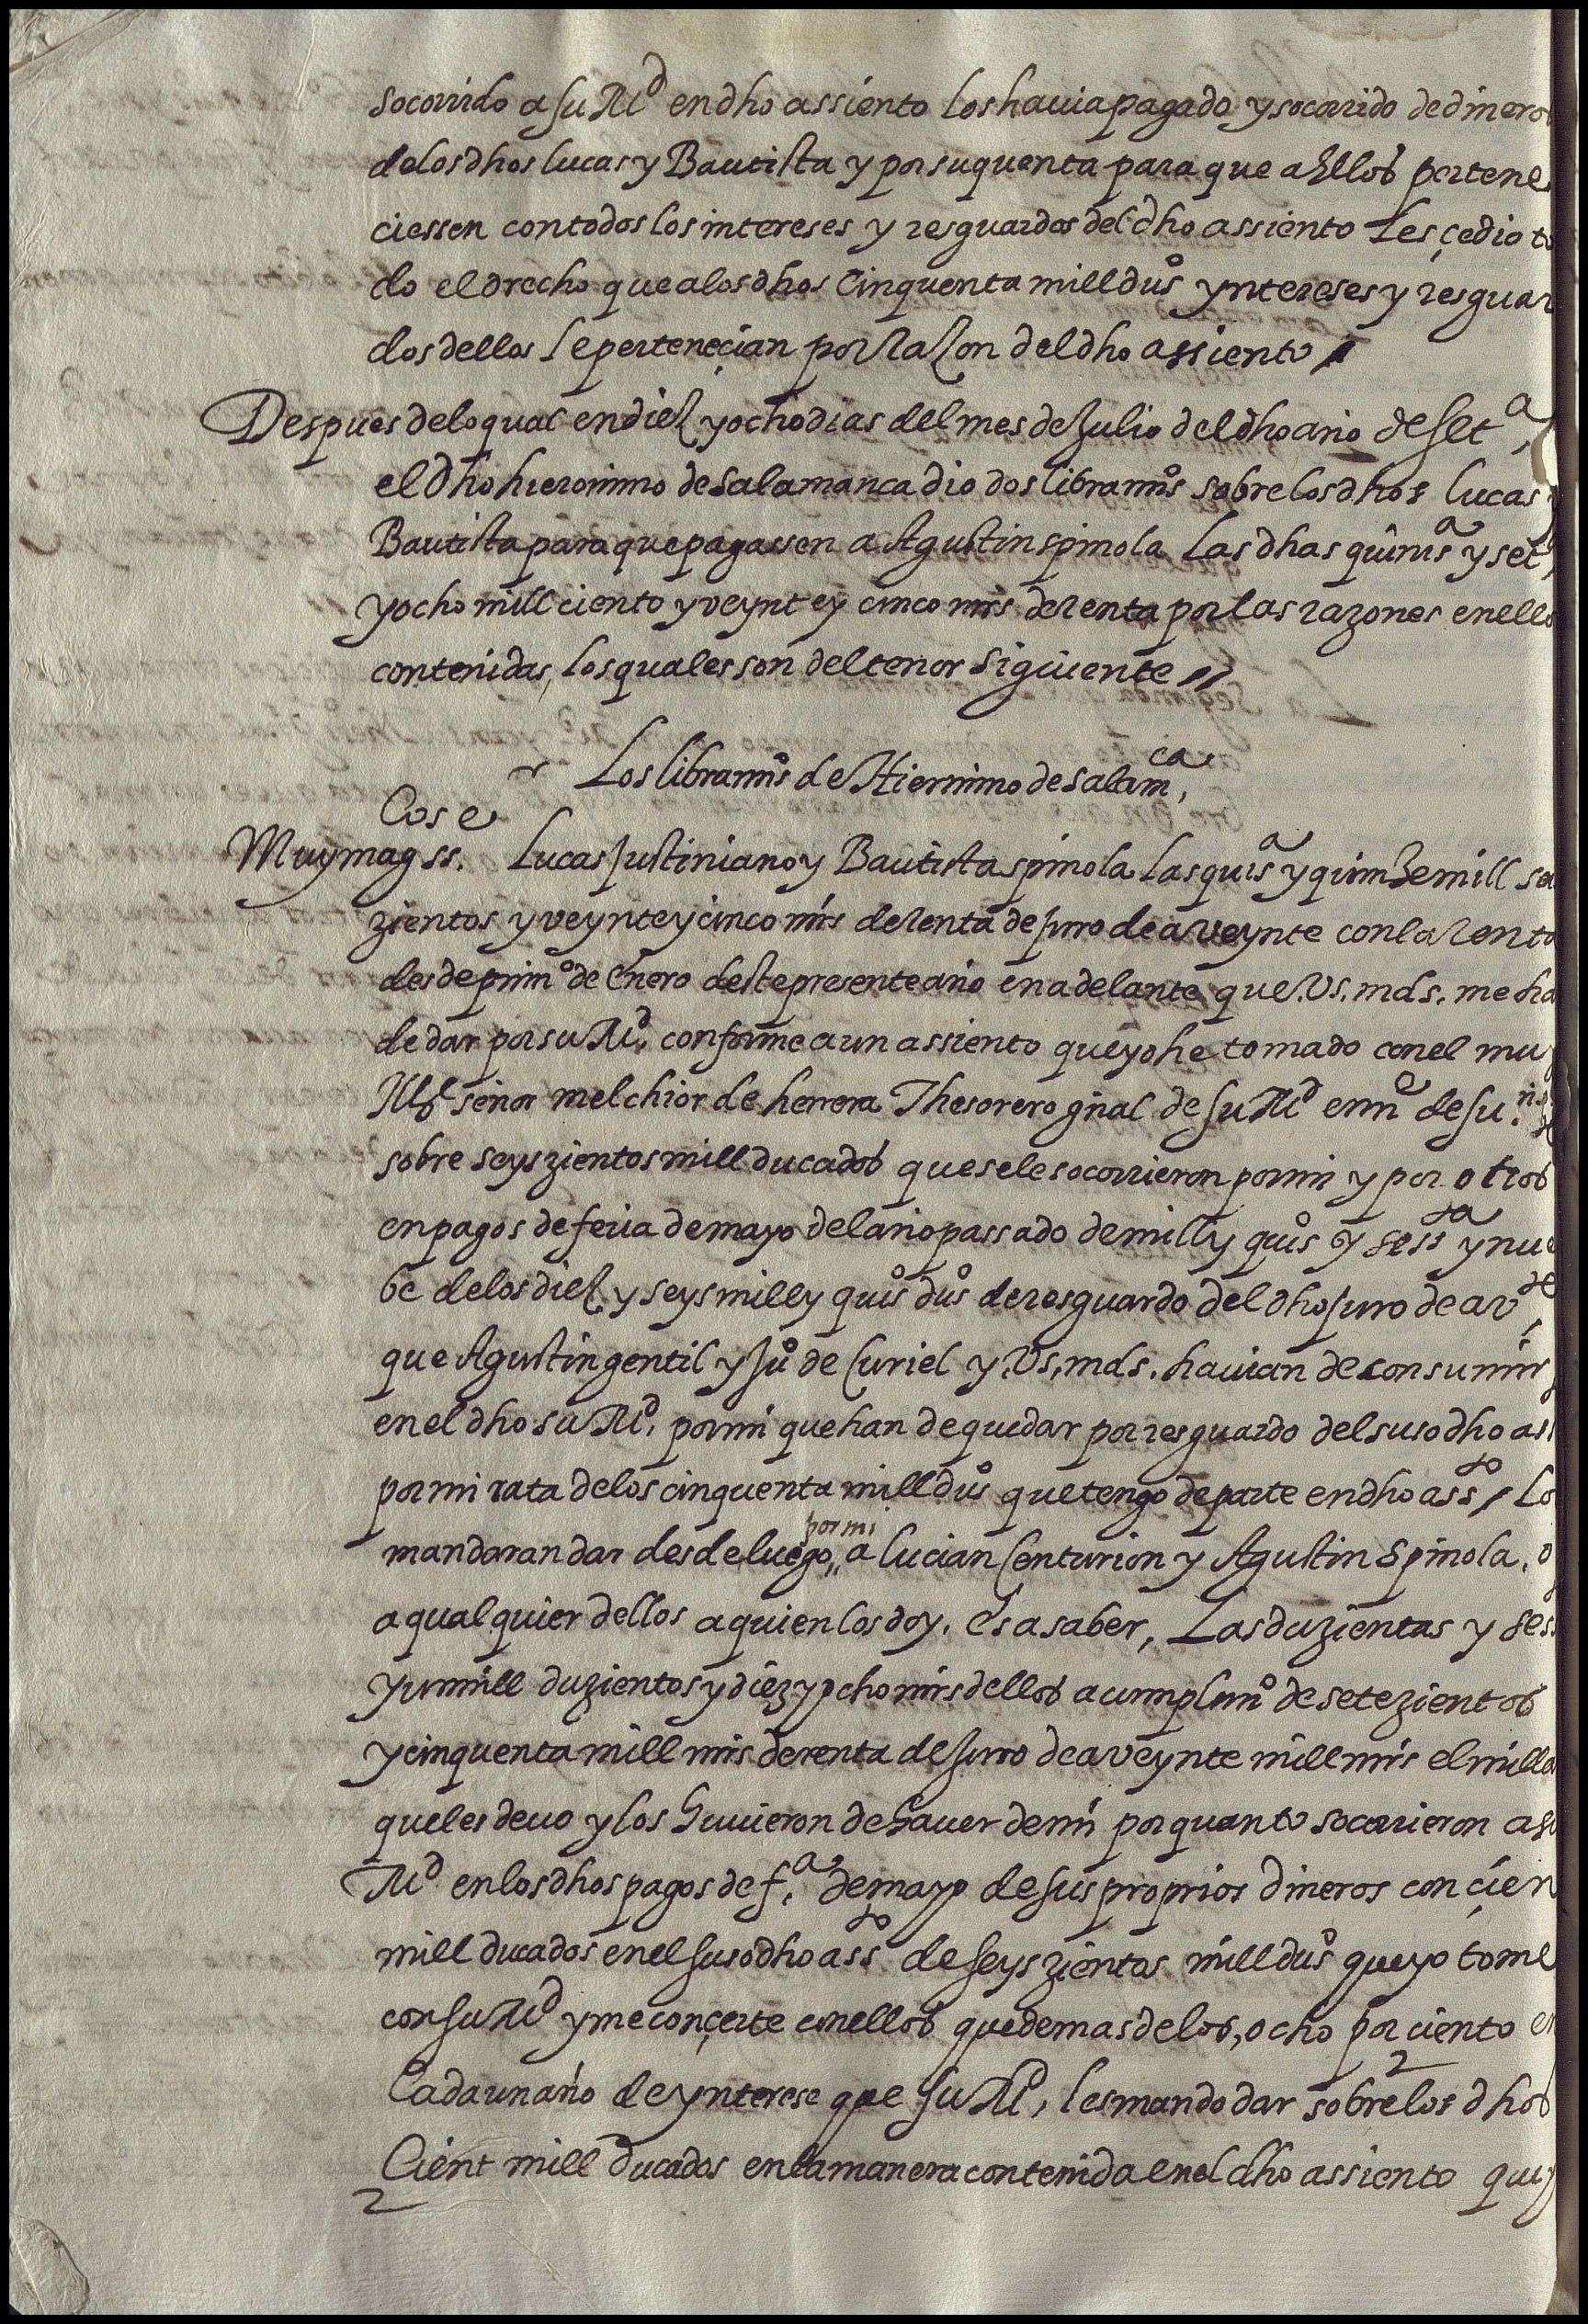 socorrido a su Md en dho assiento los hauia pagado y socorrido de dineros
de los dhos lucas y Bautista y por su quenta para que a Ellos pertene
ciessen con todos los intereses y resguardos del dho assiento Les çedio to
do el drecho que a los dhos Cinquenta mill dus yntereses y resguar
dos dellos le perteneçian por razon del dho assiento
Despues de lo qual en diez y ocho dias del mes de Julio del dho año de seta,
el dho hieronimo de Salamanca dio dos libramos sobre los dhos Lucas y
Bautista para que pagassen a Agustin spinola Las dhas quinisa y seta,
y ocho mill ciento y veynte y cinco mrs de renta por las razones en ello
contenidas, los quales son del tenor siguiente //
Los libramos de Hiernimo de Salamca,
Cose
Muy mag ss. Lucas Justiniano y Bautista spinola Las quisa y quinze mill se
zientos y veynte y cinco mrs de renta de juro de a veynte con la renta
desde primo de Enero deste presente año en adelante que Vs. mds. me ha
de dar por su Md, conforme a un assiento que yo he tomado con el muy
Ille señor melchior de herrera Thesorero gñal de su Md en ne de su
sobre seyszientos mill ducados que se le socorrieron por mi y por otros
en pagos de feria de mayo del año passado de mill y quis y sessta y nue
be de los diez y seys mill y quis dus de resguardo del dho juro de a vte,
que Agustin gentil y Ju de Curiel y Vs, mds. hauian de consumir
en el dho su Md, por mi que han de quedar por resguardo del suso dho ass
por mi rata de los cinquenta mill dus que tengo de parte en dho assto, Lo
mandaran dar desde luego,, por mi a Lucian Centurion y Agustin Spinola, o
a qualquier dellos a quien los doy. Es a saber, Las duzientas y ses
y un mill duzientos y diez y ocho mrs dellos a cumplimo de setezientos
y cinquenta mill mrs de renta de Juro de a veynte mill mrs el milla
que les deuo y los huuieron de hauer de mi por quanto socorrieron a su
Md en los dhos pagos de fa, de mayo de sus proprios dineros con çien
mill ducados en el suso dho assto de seyszientos mill dus que yo tome
con su Md y me conçerte con ellos que demas de los, ocho por ciento en
Cada un año de ynterese que su Md, les mando dar sobre los dhos
Cient mill ducados en la manera contenida en el dho assiento que y